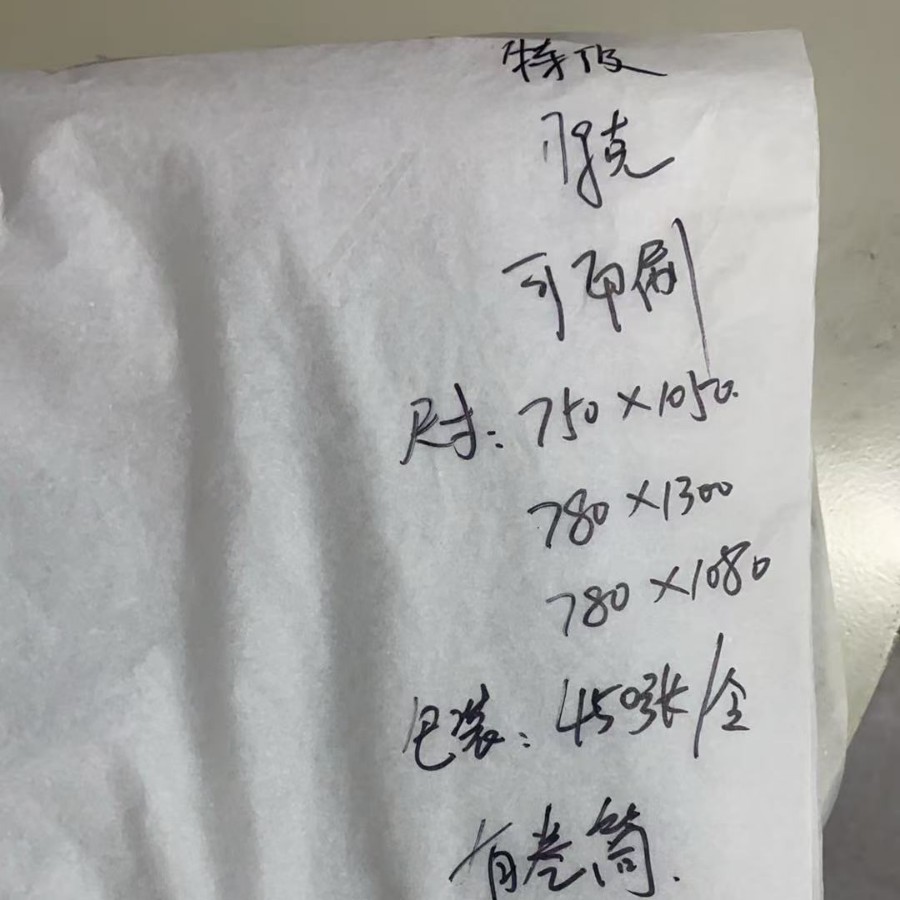 特级
17g克
可印刷
尺寸：750×1050.
780×1300
780×1080
包装：450张/令
有卷筒.